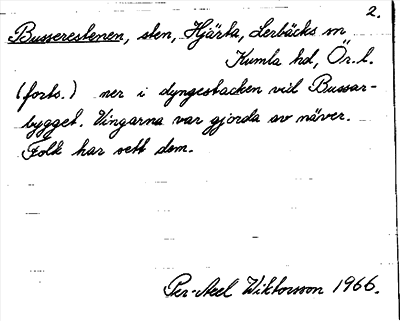 2.
Busserestenen, sten, Hjärta, Lerbäcks sn
Kumla hd, Ör. l.
(forts.) ner i dyngestacken vid Bussar-
bygget. Vingarna var gjorda av näver.
Folk har sett dem.
Per-Axel Wiktorsson 1966.